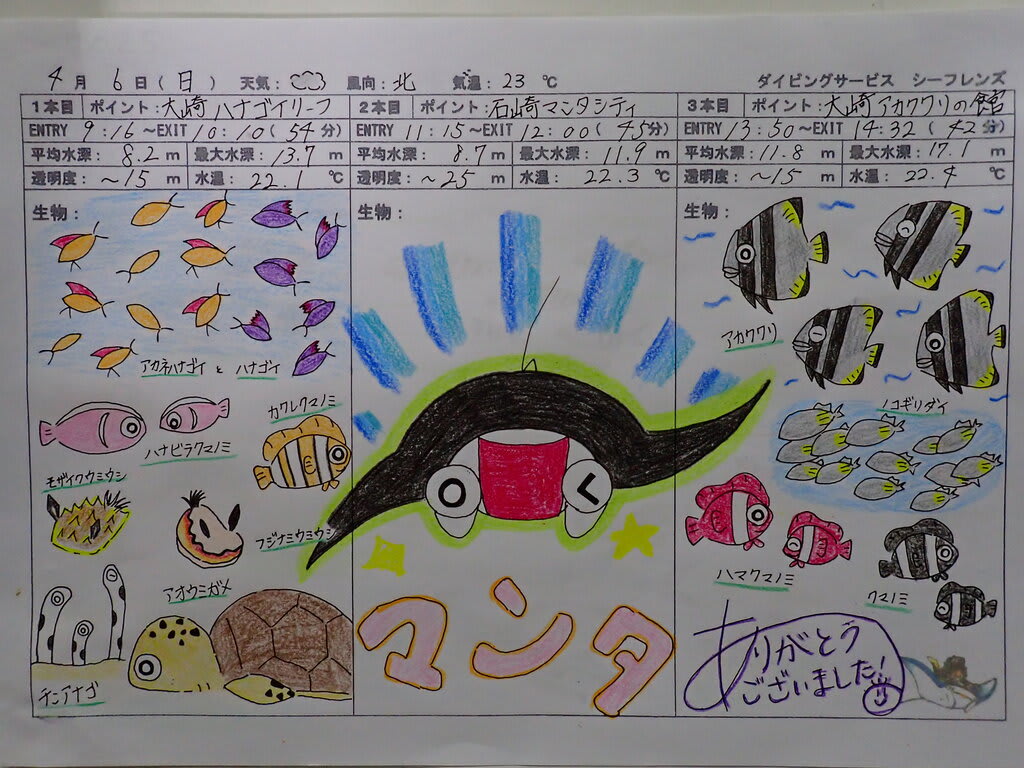 4月 6日(日) 天気: 風向:北 気温:23℃ ダイビングサービス シーフレンズ
1本目 ポイント:大崎ハナゴイリーフ
ENTRY 9:16~EXIT 10:10(54分)
平均水深: 8.2m 最大水深: 13.7m
透明度: ~15m 水温: 22.1℃
生物:
アカネハナゴイ と ハナゴイ
カクレクマノミ
ハナビラクマノミ
モザイクウミウシ
フジナミウミウシ
アオウミガメ
チンアナゴ
2本目 ポイント:石崎マンタシティ
ENTRY 11:15~EXIT 12:00(45分)
平均水深: 8.7m 最大水深: 11.9m
透明度: ~25m 水温: 22.3℃
生物:
マンタ
3本目 ポイント:大崎アカククリの館
ENTRY 13:50~EXIT 14:32(42分)
平均水深: 11.8m 最大水深: 17.1m
透明度: ~15m 水温: 22.4℃
生物:
アカククリ
ノコギリダイ
ハマクマノミ
クマノミ
ありがとう
ございました!